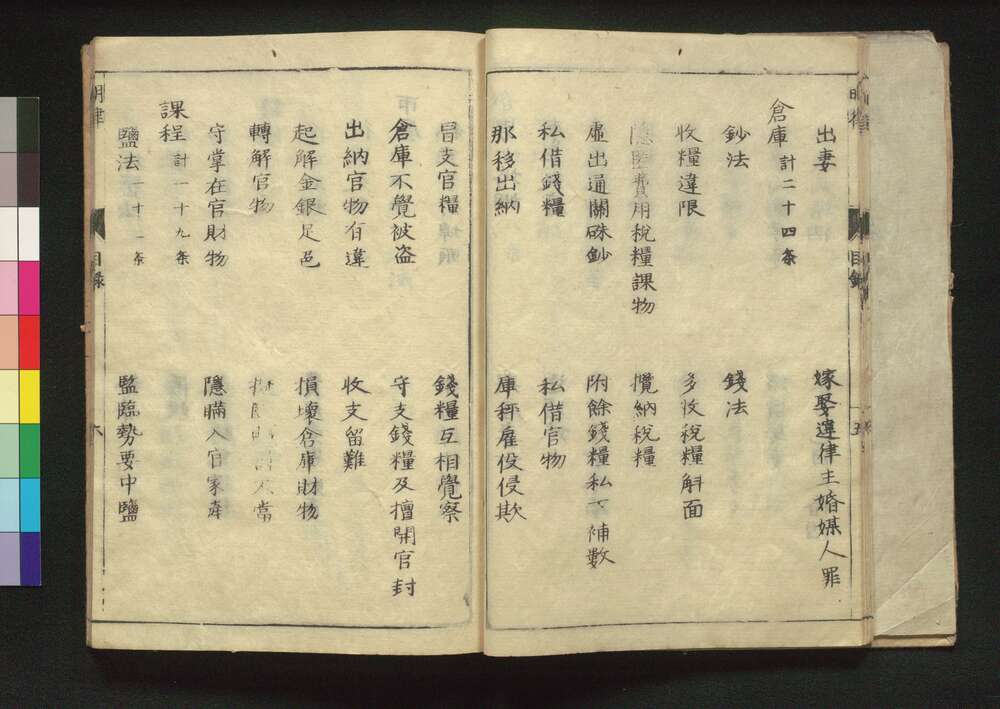 出妻　嫁娶違律主婚媒人罪
倉庫　計二十四条
鈔法　錢法
收糧違限　多收税糧斛面
隱匿費用税糧課物　攬納税糧
虛出通關硃鈔　附餘錢糧私下補數
私借錢糧　私借官物
那移出納　庫秤雇役侵欺
冒支官糧　錢糧互相覺察
倉庫不覺被盗　守支錢糧及擅開官封
出納官物有違　收支留難
起解金銀足色　損壞倉庫財物
轉解官物
守掌在官財物　隱瞞入官家産
課程　計一十九条
鹽法　一十二条　監臨勢要中鹽
明律　目录　六
目錄　五